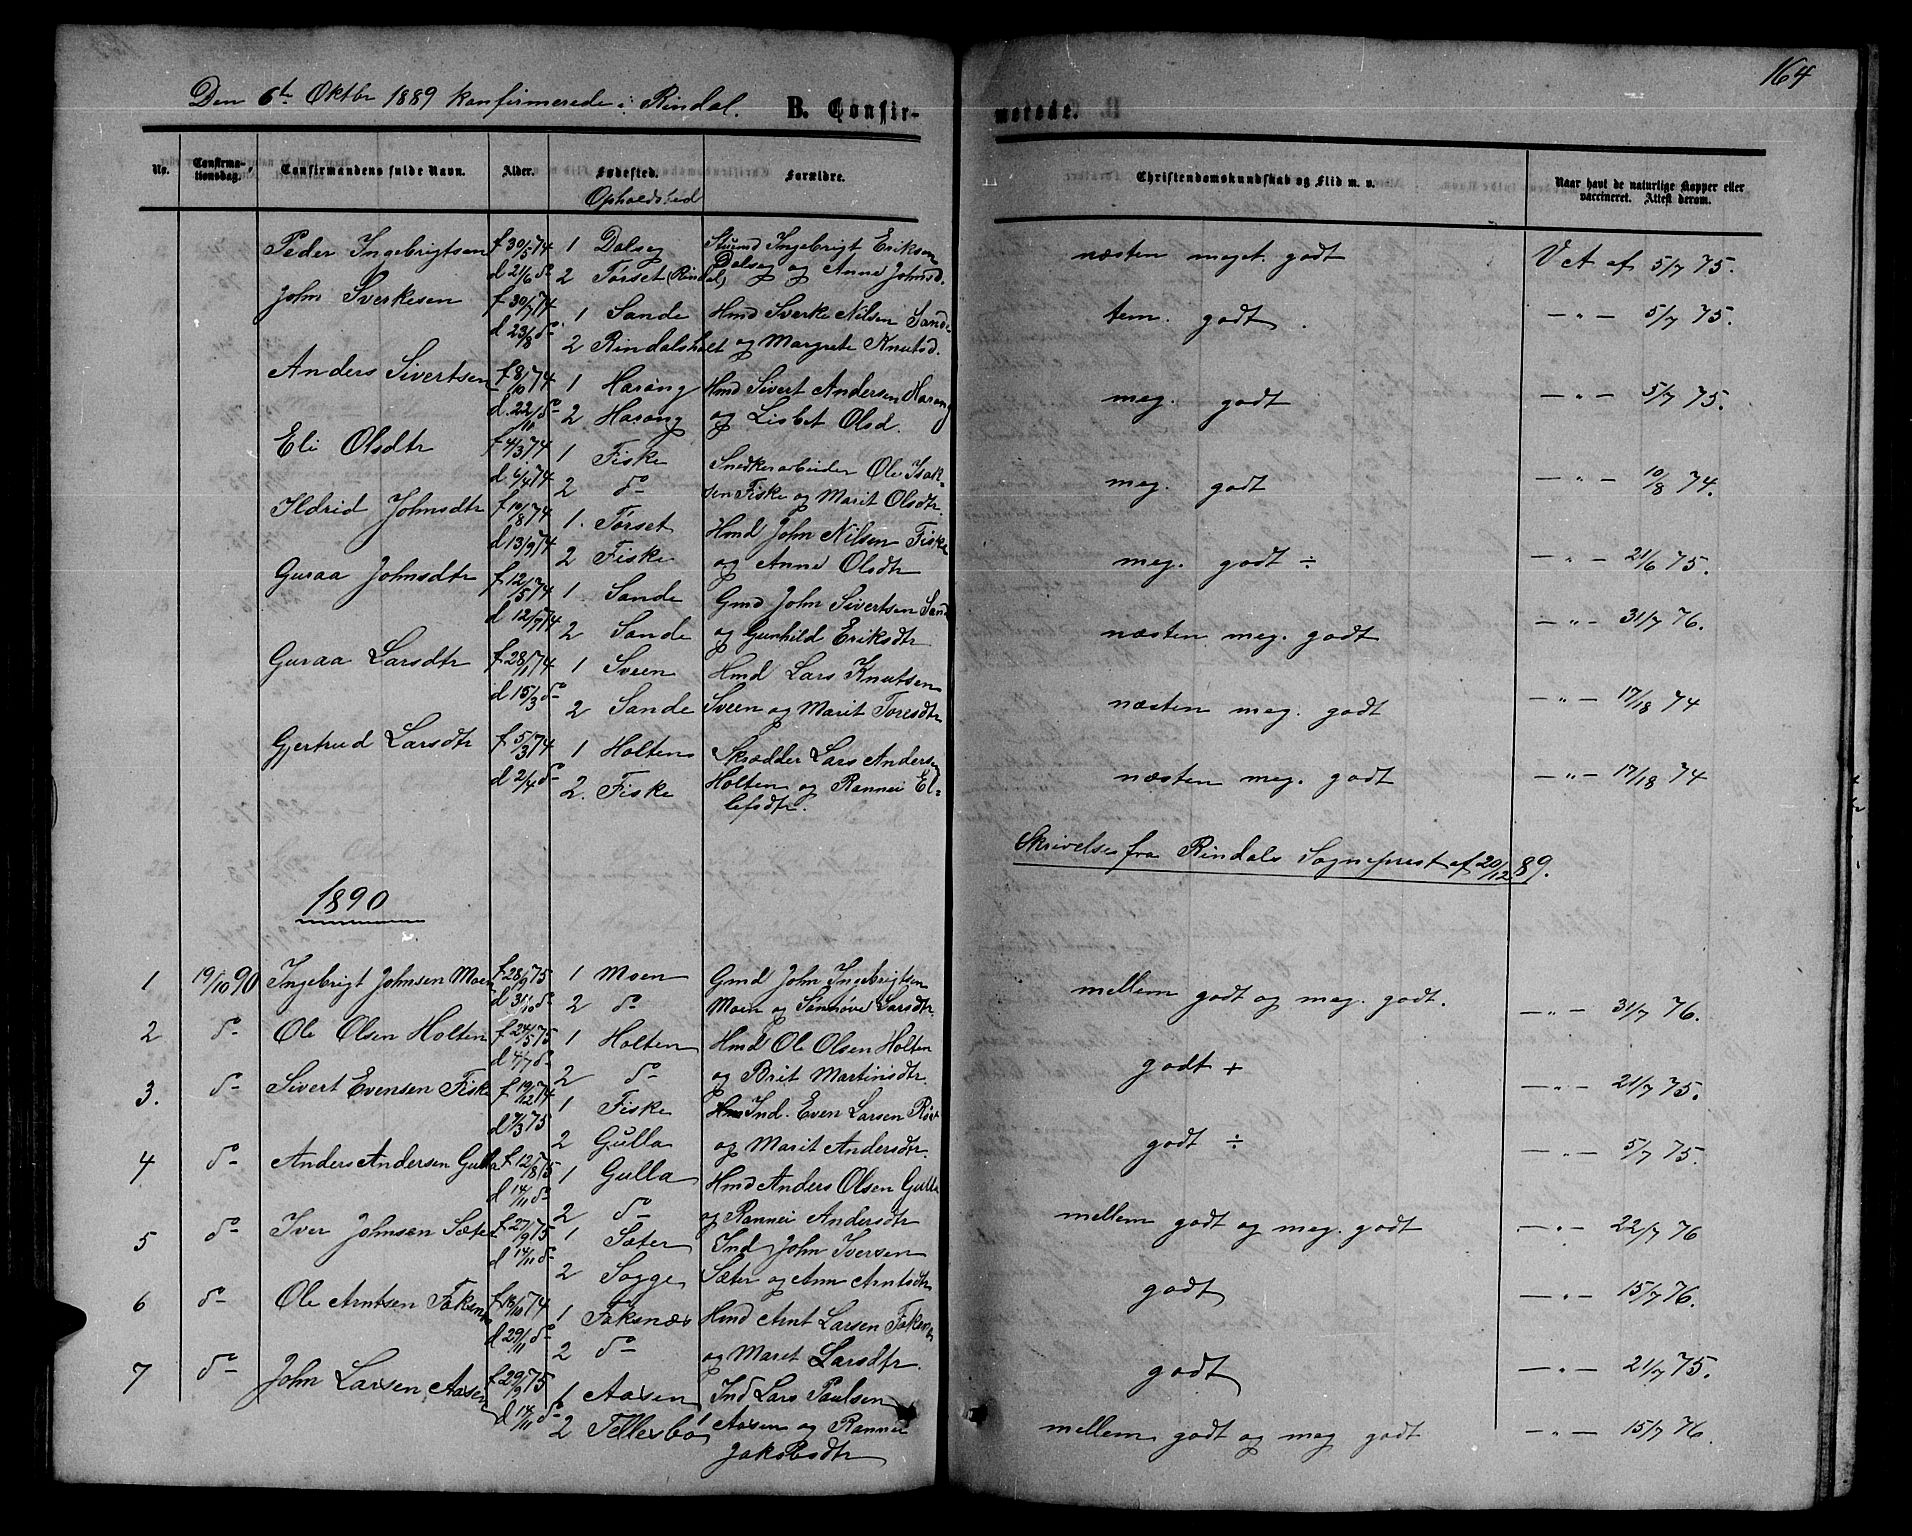 164
Den 6te Oktbr 1889 konfirmerede i Rindal. B. Confir- merede.
No. Confirma-tionsdag. Confirmandens fulde Navn. Alder. Fødested. Forældre. Christendomskundskab og Flid m. v. Naar havt de naturlige Kopper eller vaccineret. Attest derom.
Opholdssted
Peder Ingebrigtsen f 30/5 74 1 Dalseg Ingebrigt Eriksen næsten meget godt V. A. af 5/7 75.
d 21/6 do 2 Tørset (Rindal) Dalseg og Anne Johnsd.
John Sverkesen f 30/7 74 1 Sande Hmd Sverke Nilsen Sande tem. godt — " — 5/7 75.
d 23/8 do 2 Rindalsholt og Margrete Knutsd.
Anders Sivertsen f 8/10 74 1 Harang Hmd Sivert Andersen Harang meg. godt — " — 5/7 75.
d. 22/11 do 2 Harang og Lisbet Olsd.
Eli Olsdtr f 4/3 74 1 Fiske Snedkerarbeider Ole Isak- meg. godt — " — 10/8 74.
d. 6/4 74 2 do sen Fiske og Marit Olsdtr.
Ildrid Johnsdtr f 10/8 74 1. Tørset Hmd John Nilsen Fiske meg. godt ÷ — " — 21/6 75.
d 13/9 74 2 Fiske og Anne Olsdtr
Guraa Johnsdtr f 12/5 74 1 Sande Gmd John Sivertsen Sande næsten meg. godt — " — 31/7 76.
d 12/7 74 2 Sande og Gunhild Eriksdtr
Guraa Larsdtr f 28/1 74 1 Sveen Hmd Lars Knutsen næsten meg. godt — " — 17/18 74
d 15/3 do 2 Sande Sveen og Marit Toresdtr
Gjertrud Larsdtr f 5/3 74 1 Holten Skrædder Lars Andersen næsten meg. godt — " — 17/18 74
d 2/4 do 2. Fiske Holten og Rannei El-
lefsdtr.
Skrivelse fra Rindals Sogneprest af 20/12 89.
1890
1 19/10 90 Ingebrigt Johnsen Moen f 28/9 75 1 Moen Gmd John Ingebrigtsen mellem godt og meg. godt. — " — 31/7 76.
d 31/10 do 2 do Moen og Synnøve Larsdtr
2 do Ole Olsen Holten f 24/5 75 1 Holten Hmd Ole Olsen Holten godt + — " — 21/7 75.
d 4/7 do 2 do og Brit Martinsdtr.
3. do Sivert Evensen Fiske f 19/12 74 1 Fiske Ind. Even Larsen godt ÷ — " — 5/7 75.
d 7/3 75 2 Gulla og Marit Andersdtr.
4 do Anders Andersen Gulla f 12/8 75 1 Gulla Hmd Anders Olsen Gulla mellem godt og meg. godt — " — 22/7 76
d 14/11 do 2 do og Rannei Andersdtr
5 do Iver Johnsen Sæter f 27/9 75 1 Sæter Ind John Iversen godt — " — 15/7 76.
d 14/11 do 2 Sogge Sæter og Ane Arntsdtr
6 do Ole Arntsen Foksnæs f 18/10 74 1 Foksnæs Hmd Arnt Larsen Foksnæs godt — " — 21/7 75.
d 29/11 do 2 do og Maret Larsdtr.
7 do John Larsen Aasen f 29/9 75 1 Aasen Ind Lars Paulsen mellem godt og meg godt — " — 15/7 76.
d 14/11 do 2 Tellesbø Aasen og Rannei
Jakobsdtr